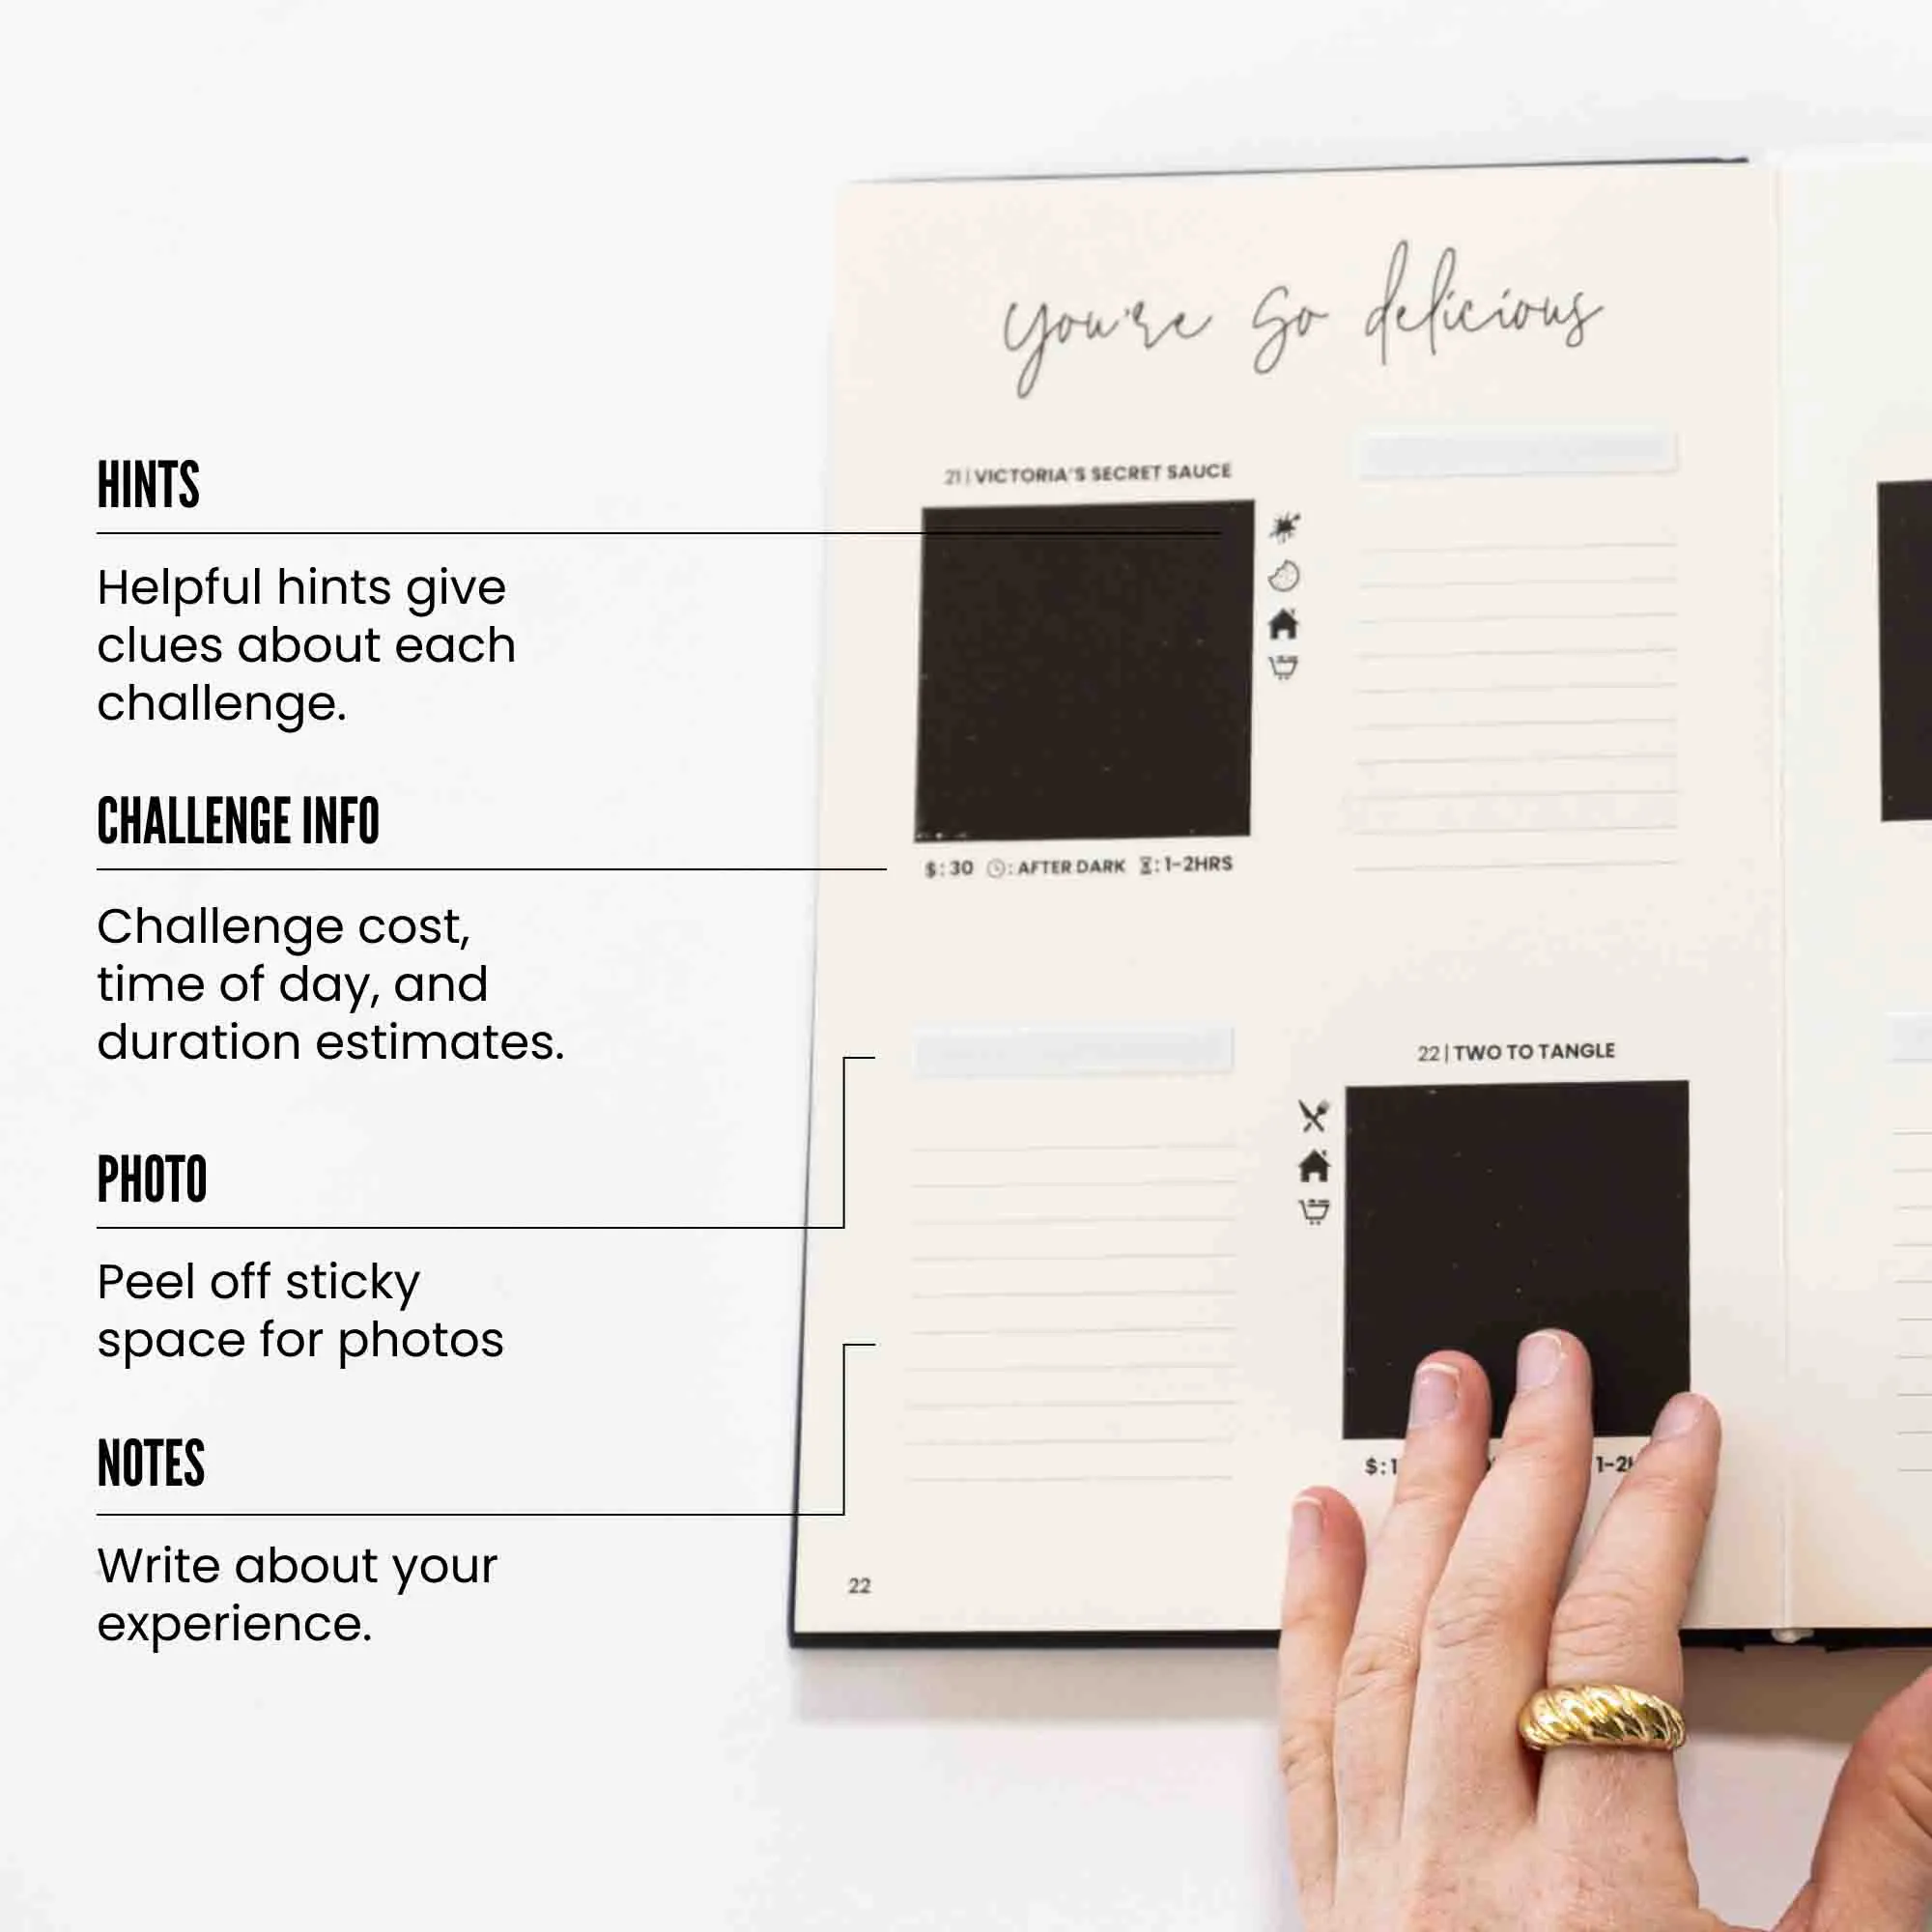 you're so delicious
HINTS
Helpful hints give
clues about each
challenge.
CHALLENGE INFO
Challenge cost,
time of day, and
duration estimates.
PHOTO
Peel off sticky
space for photos
NOTES
Write about your
experience.
21 | VICTORIA'S SECRET SAUCE
$: 30 : AFTER DARK : 1-2HRS
22 | TWO TO TANGLE
$:1
22